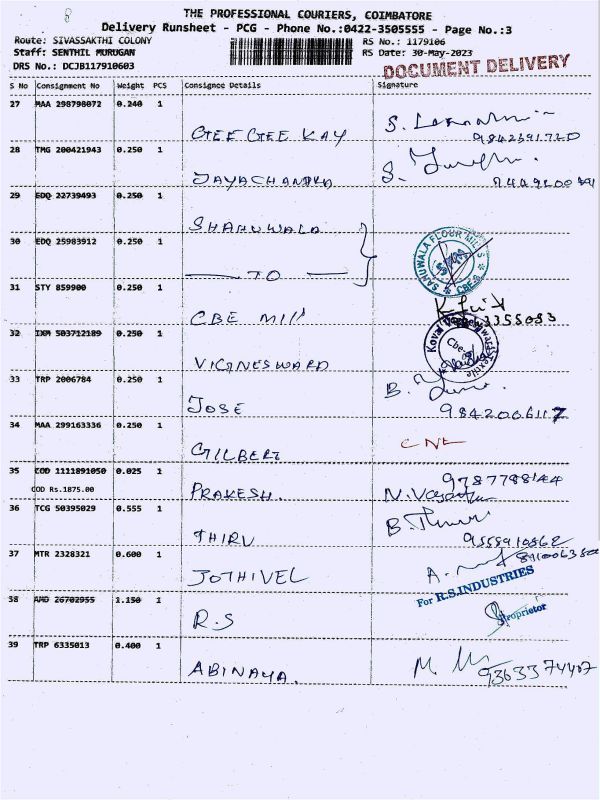 THE PROFESSIONAL COURIERS, COIMBATORE
Delivery Runsheet - PCG - Phone No.:0422-3505555 - Page No.:3
Route: SIVASSAKTHI COLONY
Staff: SENTHIL MURUGAN
DRS No.: DCJB117910603
RS No.: 1179106
RS Date: 30-May-2023
DOCUMENT DELIVERY
S No Consignment No Weight PCS Consignee Details Signature
27 MAA 298798072 0.240 1
GEE GEE KAY
9842691720
28 TMG 200421943 0.250 1
JAYACHANDRA
29 EDQ 22739493 0.250 1
SHAHUWALA
30 EDQ 25983912 0.250 1
TO
SAHUWALA FLOUR MILLS CBE
31 STY 859900 0.250 1
CBE Mill
3355083
32 IXM 503712189 0.250 1
VIGNESWARD
Cbe
33 TRP 2006784 0.250 1
JOSE
9842006117
34 MAA 299163336 0.250 1
GILBERT
CNL
35 COD 1111891050 0.025 1
COD Rs.1875.00
PRAKESH.
9787788144
36 TCG 50395029 0.555 1
THIRU
9555910862
37 MTR 2328321 0.600 1
JOTHIVEL
For R.S.INDUSTRIES
Proprietor
38 AMD 26702955 1.150 1
R.S
39 TRP 6335013 0.400 1
ABINAYA.
9363374407